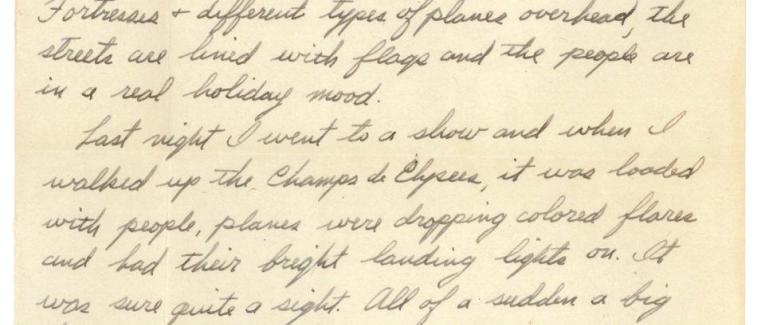 Fortresses + different types of planes overhead, the
streets are lined with flags and the people are
in a real holiday mood.
Last night I went to a show and when I
walked up the Champs de Elysees, it was loaded
with people, planes were dropping colored flares
and had their bright landing lights on. It
was sure quite a sight. All of a sudden a big